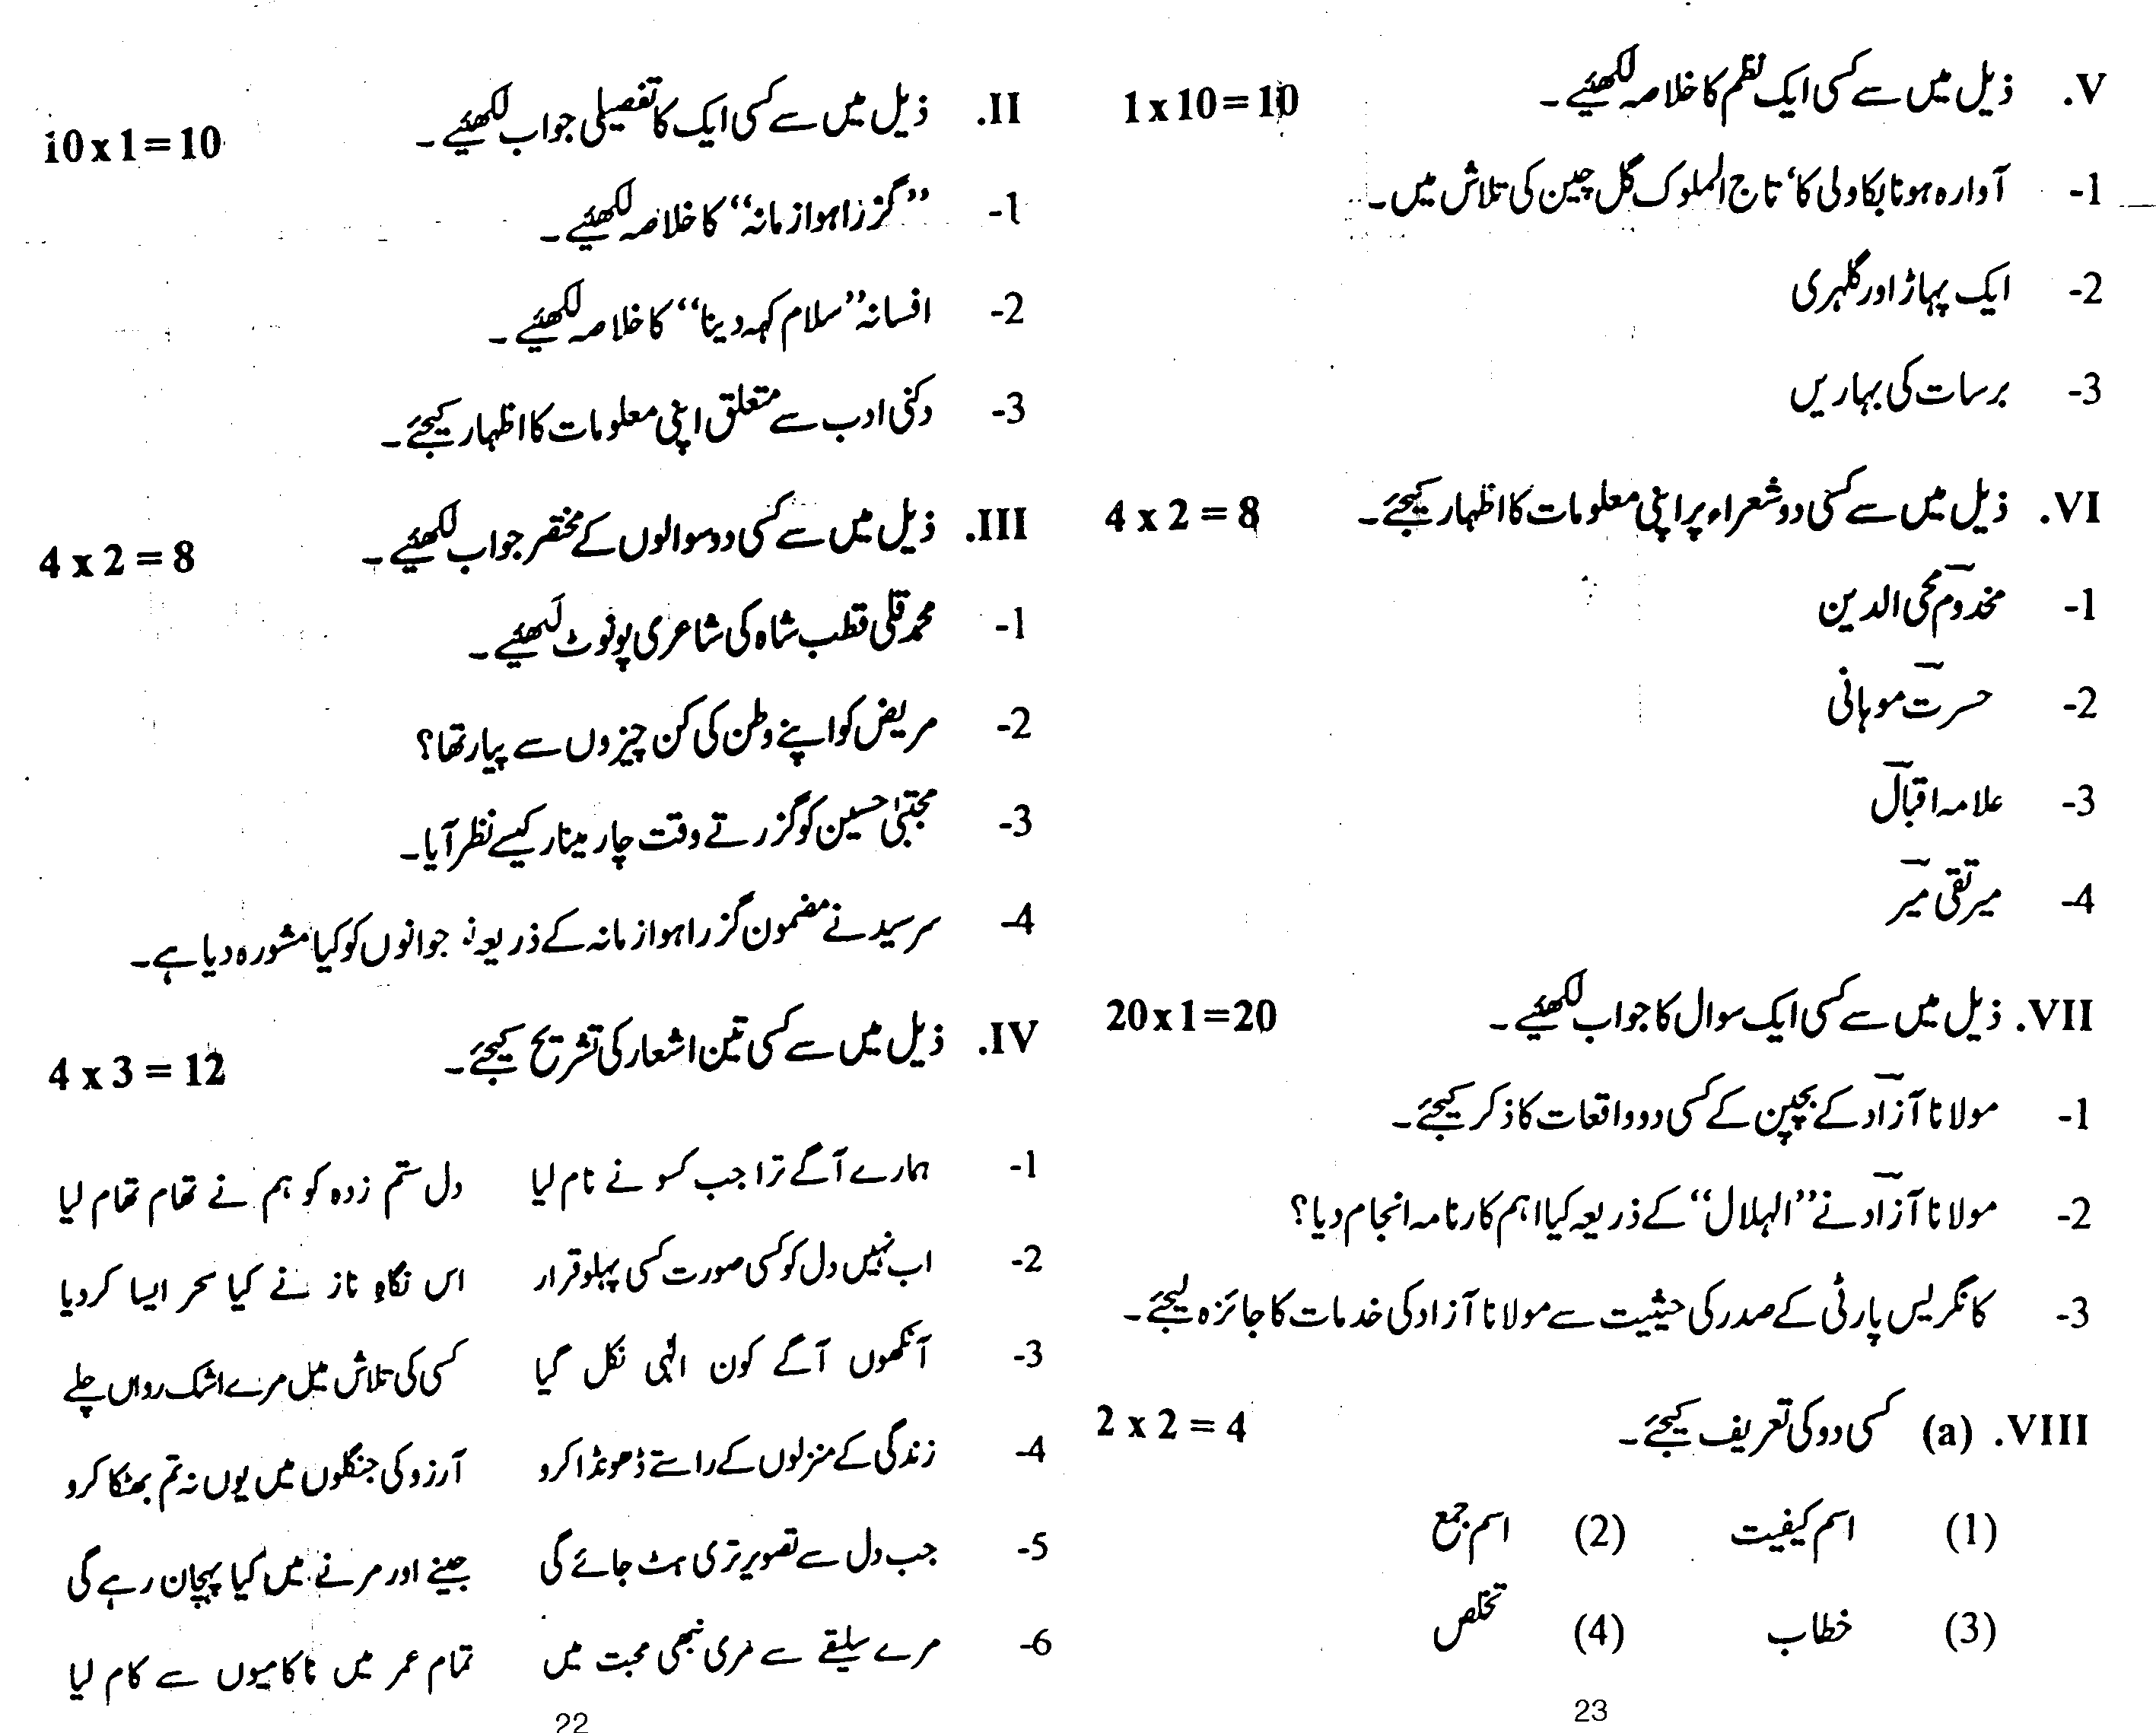 II. ذیل میں سے کسی ایک کا تفصیلی جواب لکھئیے ۔ 10 x 1 = 10
1- ’’گزرا ہوا زمانہ‘‘ کا خلاصہ لکھئیے ۔
2- افسانہ ’’سلام کہہ دینا‘‘ کا خلاصہ لکھئیے ۔
3- دکنی ادب سے متعلق اپنی معلومات کا اظہار کیجئے ۔
III. ذیل میں سے کسی دو سوالوں کے مختصر جواب لکھئیے ۔ 4 x 2 = 8
1- محمد قلی قطب شاہ کی شاعری پر نوٹ لکھئیے ۔
2- مریض کو اپنے وطن کی کن چیزوں سے پیار تھا؟
3- مجتبیٰ حسین کو گزرتے وقت چار مینار کیسے نظر آیا ۔
4- سرسید نے مضمون گزرا ہوا زمانہ کے ذریعہ نوجوانوں کو کیا مشورہ دیا ہے ۔
IV. ذیل میں سے کسی تین اشعار کی تشریح کیجئے ۔ 4 x 3 = 12
1- ہمارے آگے ترا جب کسو نے نام لیا دل ستم زدہ کو ہم نے تھام تھام لیا
2- اب نہیں دل کو کسی صورت کسی پہلو قرار اس نگاہِ ناز نے کیا سحر ایسا کر دیا
3- آنکھوں آگے کون الٰہی نکل گیا کسی کی تلاش میں مرے اشک رواں چلے
4- زندگی کے منزلوں کے راستے ڈھونڈا کرو آرزو کی جنگلوں میں یوں نہ تم بھٹکا کرو
5- جب دل سے تصویر تری ہٹ جائے گی جینے اور مرنے میں کیا پہچان رہے گی
6- مرے سلیقے سے مری نبھی محبت میں تمام عمر میں ناکامیوں سے کام لیا
22
V. ذیل میں سے کسی ایک نظم کا خلاصہ لکھئیے ۔ 1 x 10 = 10
1- آوارہ ہونا بکاولی کا‘ تاج الملوک گل چین کی تلاش میں ۔
2- ایک پہاڑ اور گلہری
3- برسات کی بہاریں
VI. ذیل میں سے کسی دو شعراء پر اپنی معلومات کا اظہار کیجئے ۔ 4 x 2 = 8
1- مخدومؔ محی الدین
2- حسرتؔ موہانی
3- علامہ اقبالؔ
4- میر تقی میرؔ
VII. ذیل میں سے کسی ایک سوال کا جواب لکھئیے ۔ 20 x 1 = 20
1- مولانا آزادؔ کے بچپن کے کسی دو واقعات کا ذکر کیجئے ۔
2- مولانا آزادؔ نے ’’الہلال‘‘ کے ذریعہ کیا اہم کارنامہ انجام دیا؟
3- کانگریس پارٹی کے صدر کی حیثیت سے مولانا آزاد کی خدمات کا جائزہ لیجئے ۔
VIII. (a) کسی دو کی تعریف کیجئے ۔ 2 x 2 = 4
(1) اسم کیفیت (2) اسم جمع
(3) خطاب (4) تخلص
23